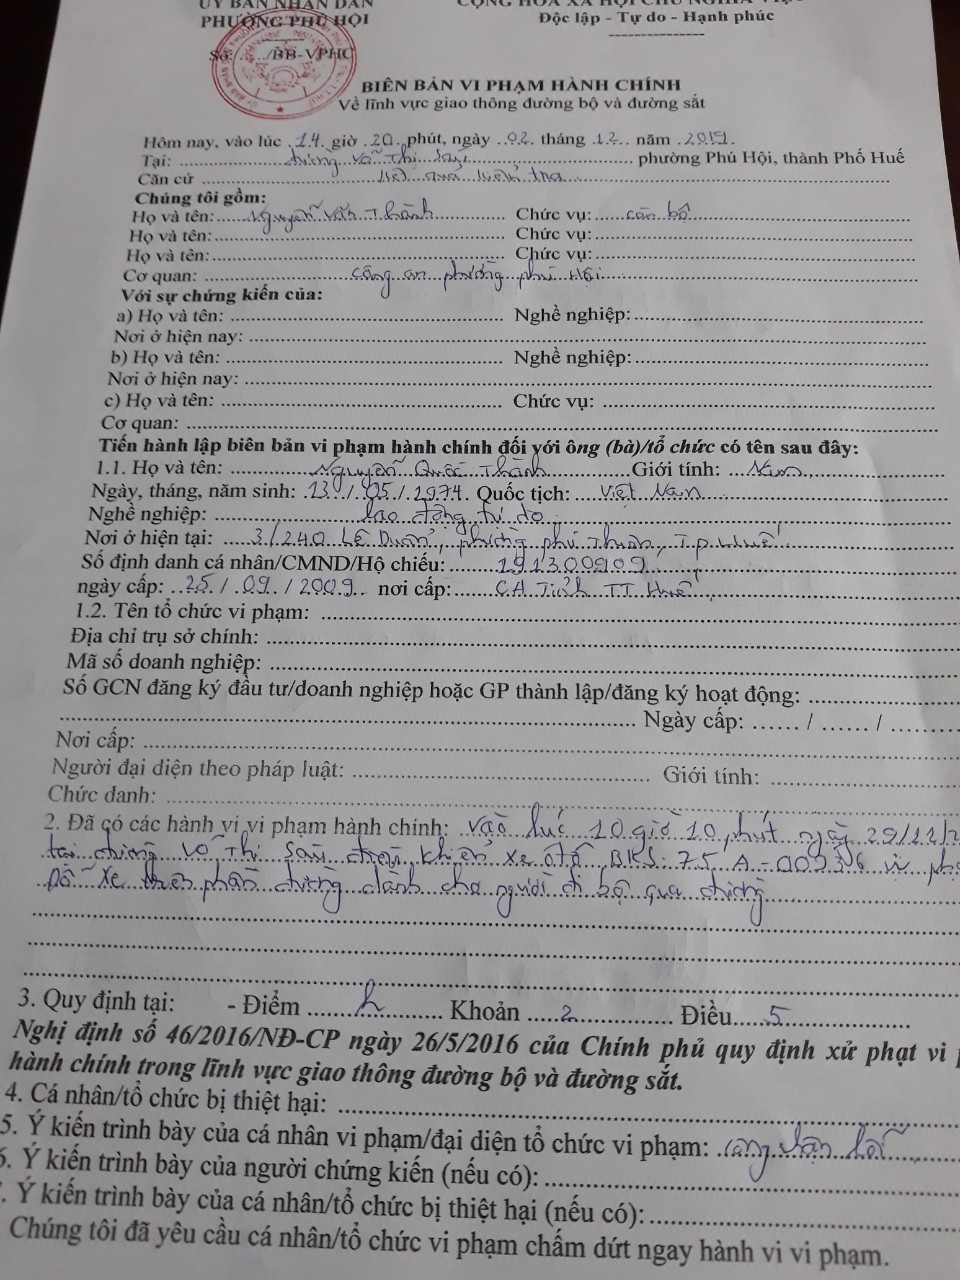 ỦY BAN NHÂN DÂN
PHƯỜNG PHÚ HỘI
CỘNG HÒA XÃ HỘI CHỦ NGHĨA VIỆT
Độc lập - Tự do - Hạnh phúc
Số: /BB-VPHC
BIÊN BẢN VI PHẠM HÀNH CHÍNH
Về lĩnh vực giao thông đường bộ và đường sắt
Hôm nay, vào lúc 14 giờ 20 phút, ngày 02 tháng 12 năm 2019.
Tại: đường Võ Thị Sáu phường Phú Hội, thành Phố Huế
Căn cứ kết quả kiểm tra
Chúng tôi gồm:
Họ và tên: Nguyễn Văn Thành Chức vụ: cán bộ
Họ và tên: Chức vụ:
Họ và tên: Chức vụ:
Cơ quan: Công an phường Phú Hội
Với sự chứng kiến của:
a) Họ và tên: Nghề nghiệp:
Nơi ở hiện nay:
b) Họ và tên: Nghề nghiệp:
Nơi ở hiện nay:
c) Họ và tên: Chức vụ:
Cơ quan:
Tiến hành lập biên bản vi phạm hành chính đối với ông (bà)/tổ chức có tên sau đây:
1.1. Họ và tên: Nguyễn Quốc Thành Giới tính: Nam
Ngày, tháng, năm sinh: 13/05/1974. Quốc tịch: Việt Nam
Nghề nghiệp: lao động tự do
Nơi ở hiện tại: 3/240 Lê Duẩn, phường phú Thuận, T.p Huế
Số định danh cá nhân/CMND/Hộ chiếu: 191300909
ngày cấp: 25/09/2009 nơi cấp: CA Tỉnh TT Huế
1.2. Tên tổ chức vi phạm:
Địa chỉ trụ sở chính:
Mã số doanh nghiệp:
Số GCN đăng ký đầu tư/doanh nghiệp hoặc GP thành lập/đăng ký hoạt động:
Ngày cấp: ...... / ...... /
Nơi cấp:
Người đại diện theo pháp luật: Giới tính:
Chức danh:
2. Đã có các hành vi vi phạm hành chính: Vào lúc 10 giờ 10 phút ngày 29/11/2
tại đường Võ Thị Sáu điều khiển xe ôtô BKS: 75A-009316 vi phạ
Đỗ xe trên phần đường dành cho người đi bộ qua đường
3. Quy định tại: - Điểm h Khoản 2 Điều 5
Nghị định số 46/2016/NĐ-CP ngày 26/5/2016 của Chính phủ quy định xử phạt vi p
hành chính trong lĩnh vực giao thông đường bộ và đường sắt.
4. Cá nhân/tổ chức bị thiệt hại:
5. Ý kiến trình bày của cá nhân vi phạm/đại diện tổ chức vi phạm: công nhận lỗi
6. Ý kiến trình bày của người chứng kiến (nếu có):
. Ý kiến trình bày của cá nhân/tổ chức bị thiệt hại (nếu có):
Chúng tôi đã yêu cầu cá nhân/tổ chức vi phạm chấm dứt ngay hành vi vi phạm.